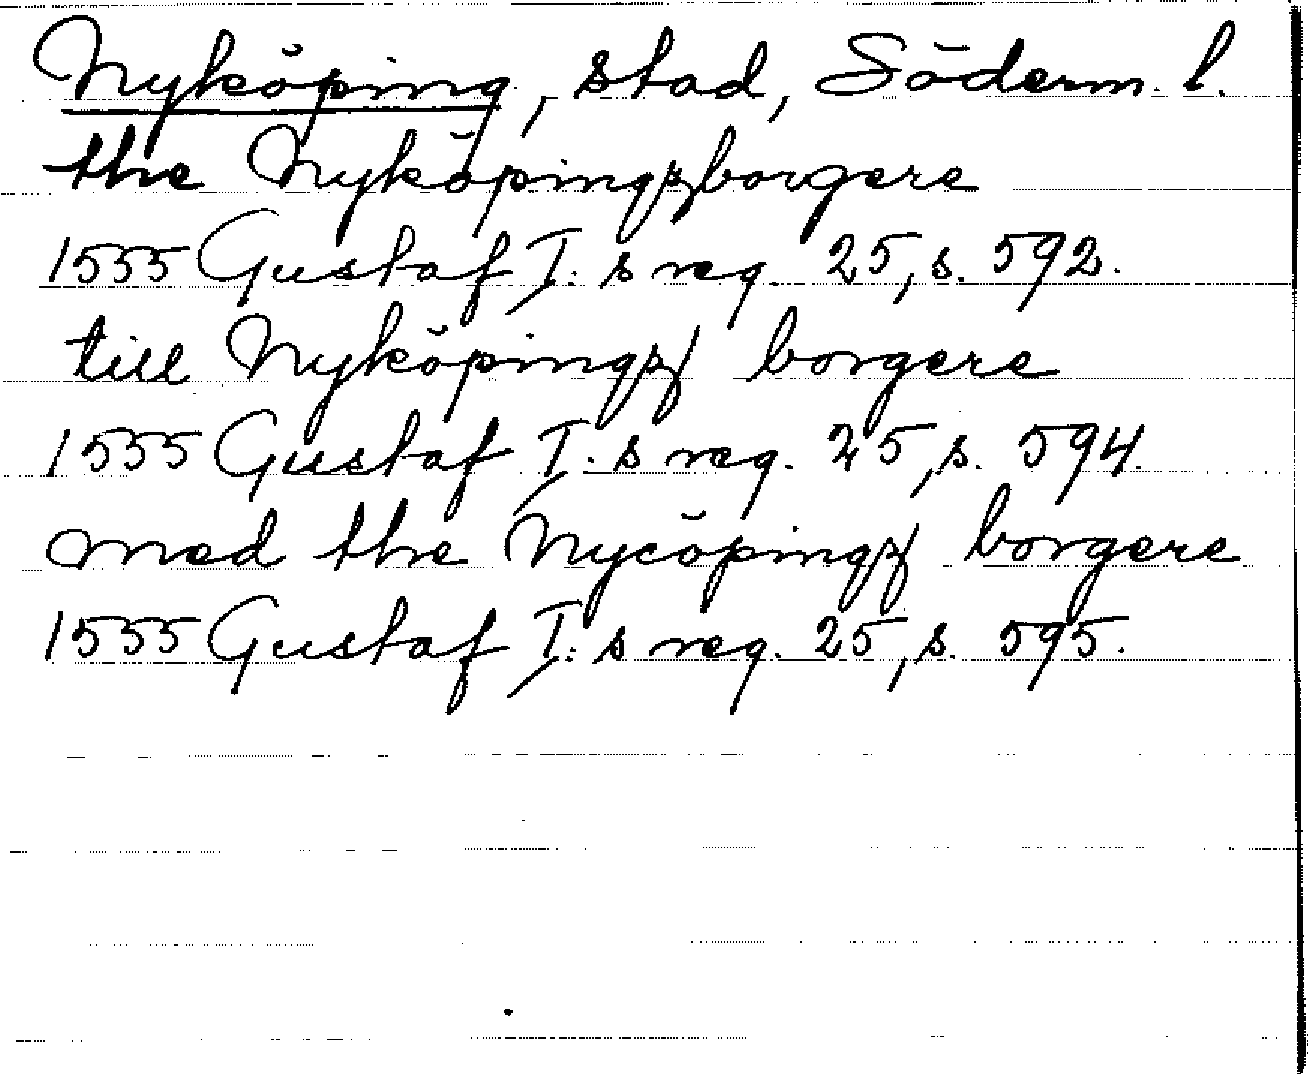 Nyköping, stad, Söderm. l.
the Nyköpingzborgere
1555 Gustaf I.s reg. 25, s. 592.
till Nyköpingz borgere
1555 Gustaf I.s reg. 25, s. 594.
med the Nycöpingz borgere
1555 Gustaf I.s reg. 25, s. 595.